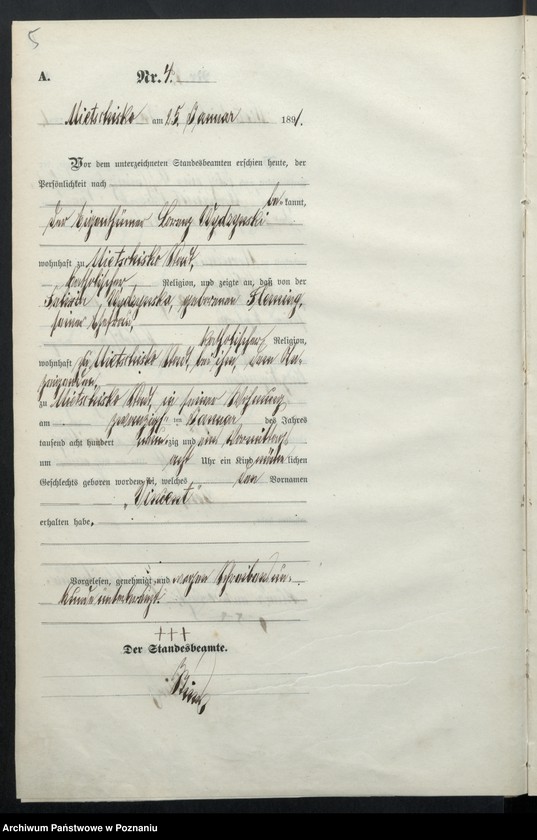 5
A. Nr. 4.
Mietschisko am 25. Januar 1891.
Vor dem unterzeichneten Standesbeamten erschien heute, der
Persönlichkeit nach
be kannt,
der Eigenthümer Lorenz
wohnhaft zu Mietschisko Stadt,
katholischer Religion, und zeigte an, daß von der
geborenen Fleming,
seiner Ehefrau,
katholischer Religion,
wohnhaft zu Mietschisko Stadt, bei ihm, dem An-
zeigenden,
zu Mietschisko Stadt, in seiner Wohnung
am zwanzigsten Januar des Jahres
tausend acht hundert neunzig und ein Vormittags
um acht Uhr ein Kind männlichen
Geschlechts geboren worden sei, welches den Vornamen
„Vincent"
erhalten habe.
Vorgelesen, genehmigt und wegen Schreibensun-
kunde unterkreuzt.
+++
Der Standesbeamte.
Archiwum Państwowe w Poznaniu